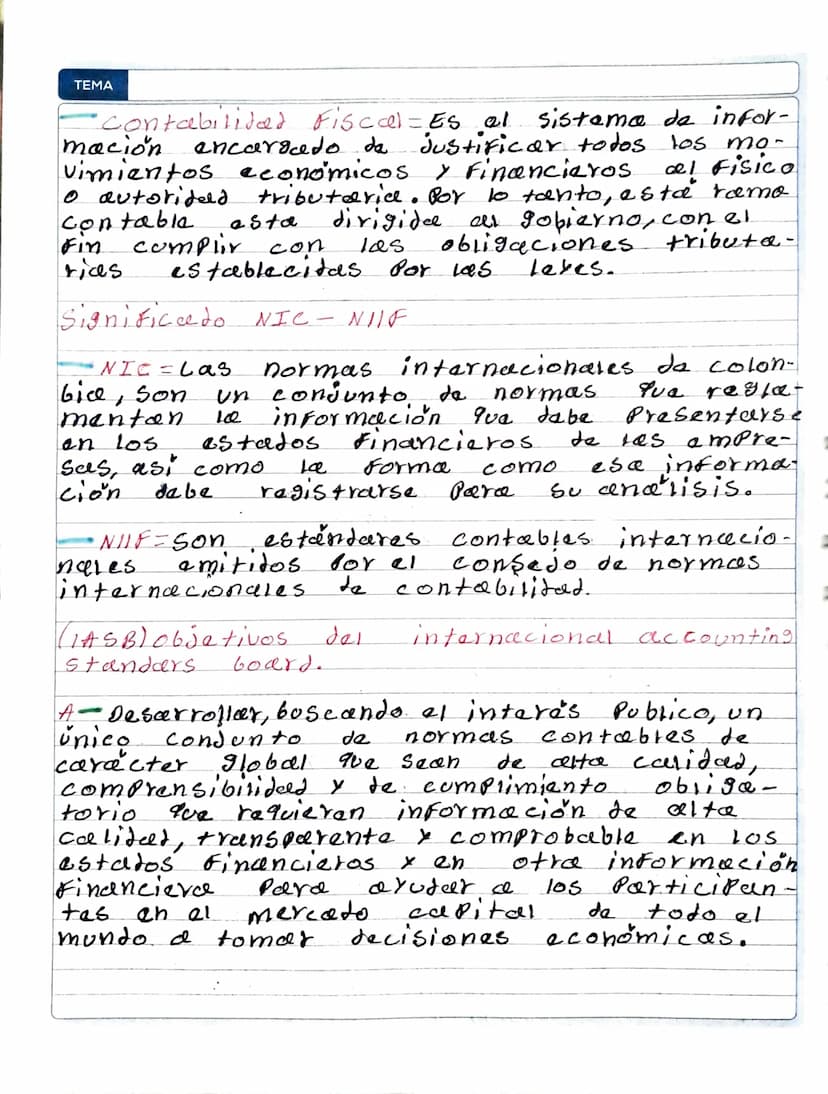 TEMA
- Contabilidad Fiscal = Es el sistema de infor-
mación encargado de Justificar todos los mo-
vimientos económicos y Financieros al Físico
o autoridad tributaria. Por lo tanto, está rama
contable esta dirigida al gobierno, con el
Fin cumplir con las obligaciones tributa-
rias establecidas Por las leyes.
Significado NIC - NIIF
- NIC = Las normas internacionales de colon-
bia, son un conjunto de normas que regla-
mentan la información que debe Presentarse
en los estados Financieros de las empre-
sas, así como la forma como esa informa-
ción debe registrarse Para su análisis.
- NIIF = Son estándares contables internacio-
nales emitidos Por el consejo de normas
internacionales de contabilidad.
(IASB) objetivos del internacional accounting
standars board.
A - Desarrollar, boscando el interés Publico, un
único conjunto de normas contables de
carácter global que sean de alta calidad,
comprensibilidad y de cumplimiento obliga-
torio que requieran información de alta
calidad, transparente y comprobable en los
estados Financieros y en otra información
Financiera Para ayudar a los Participan-
tes en el mercado capital de todo el
mundo a tomar decisiones económicas.